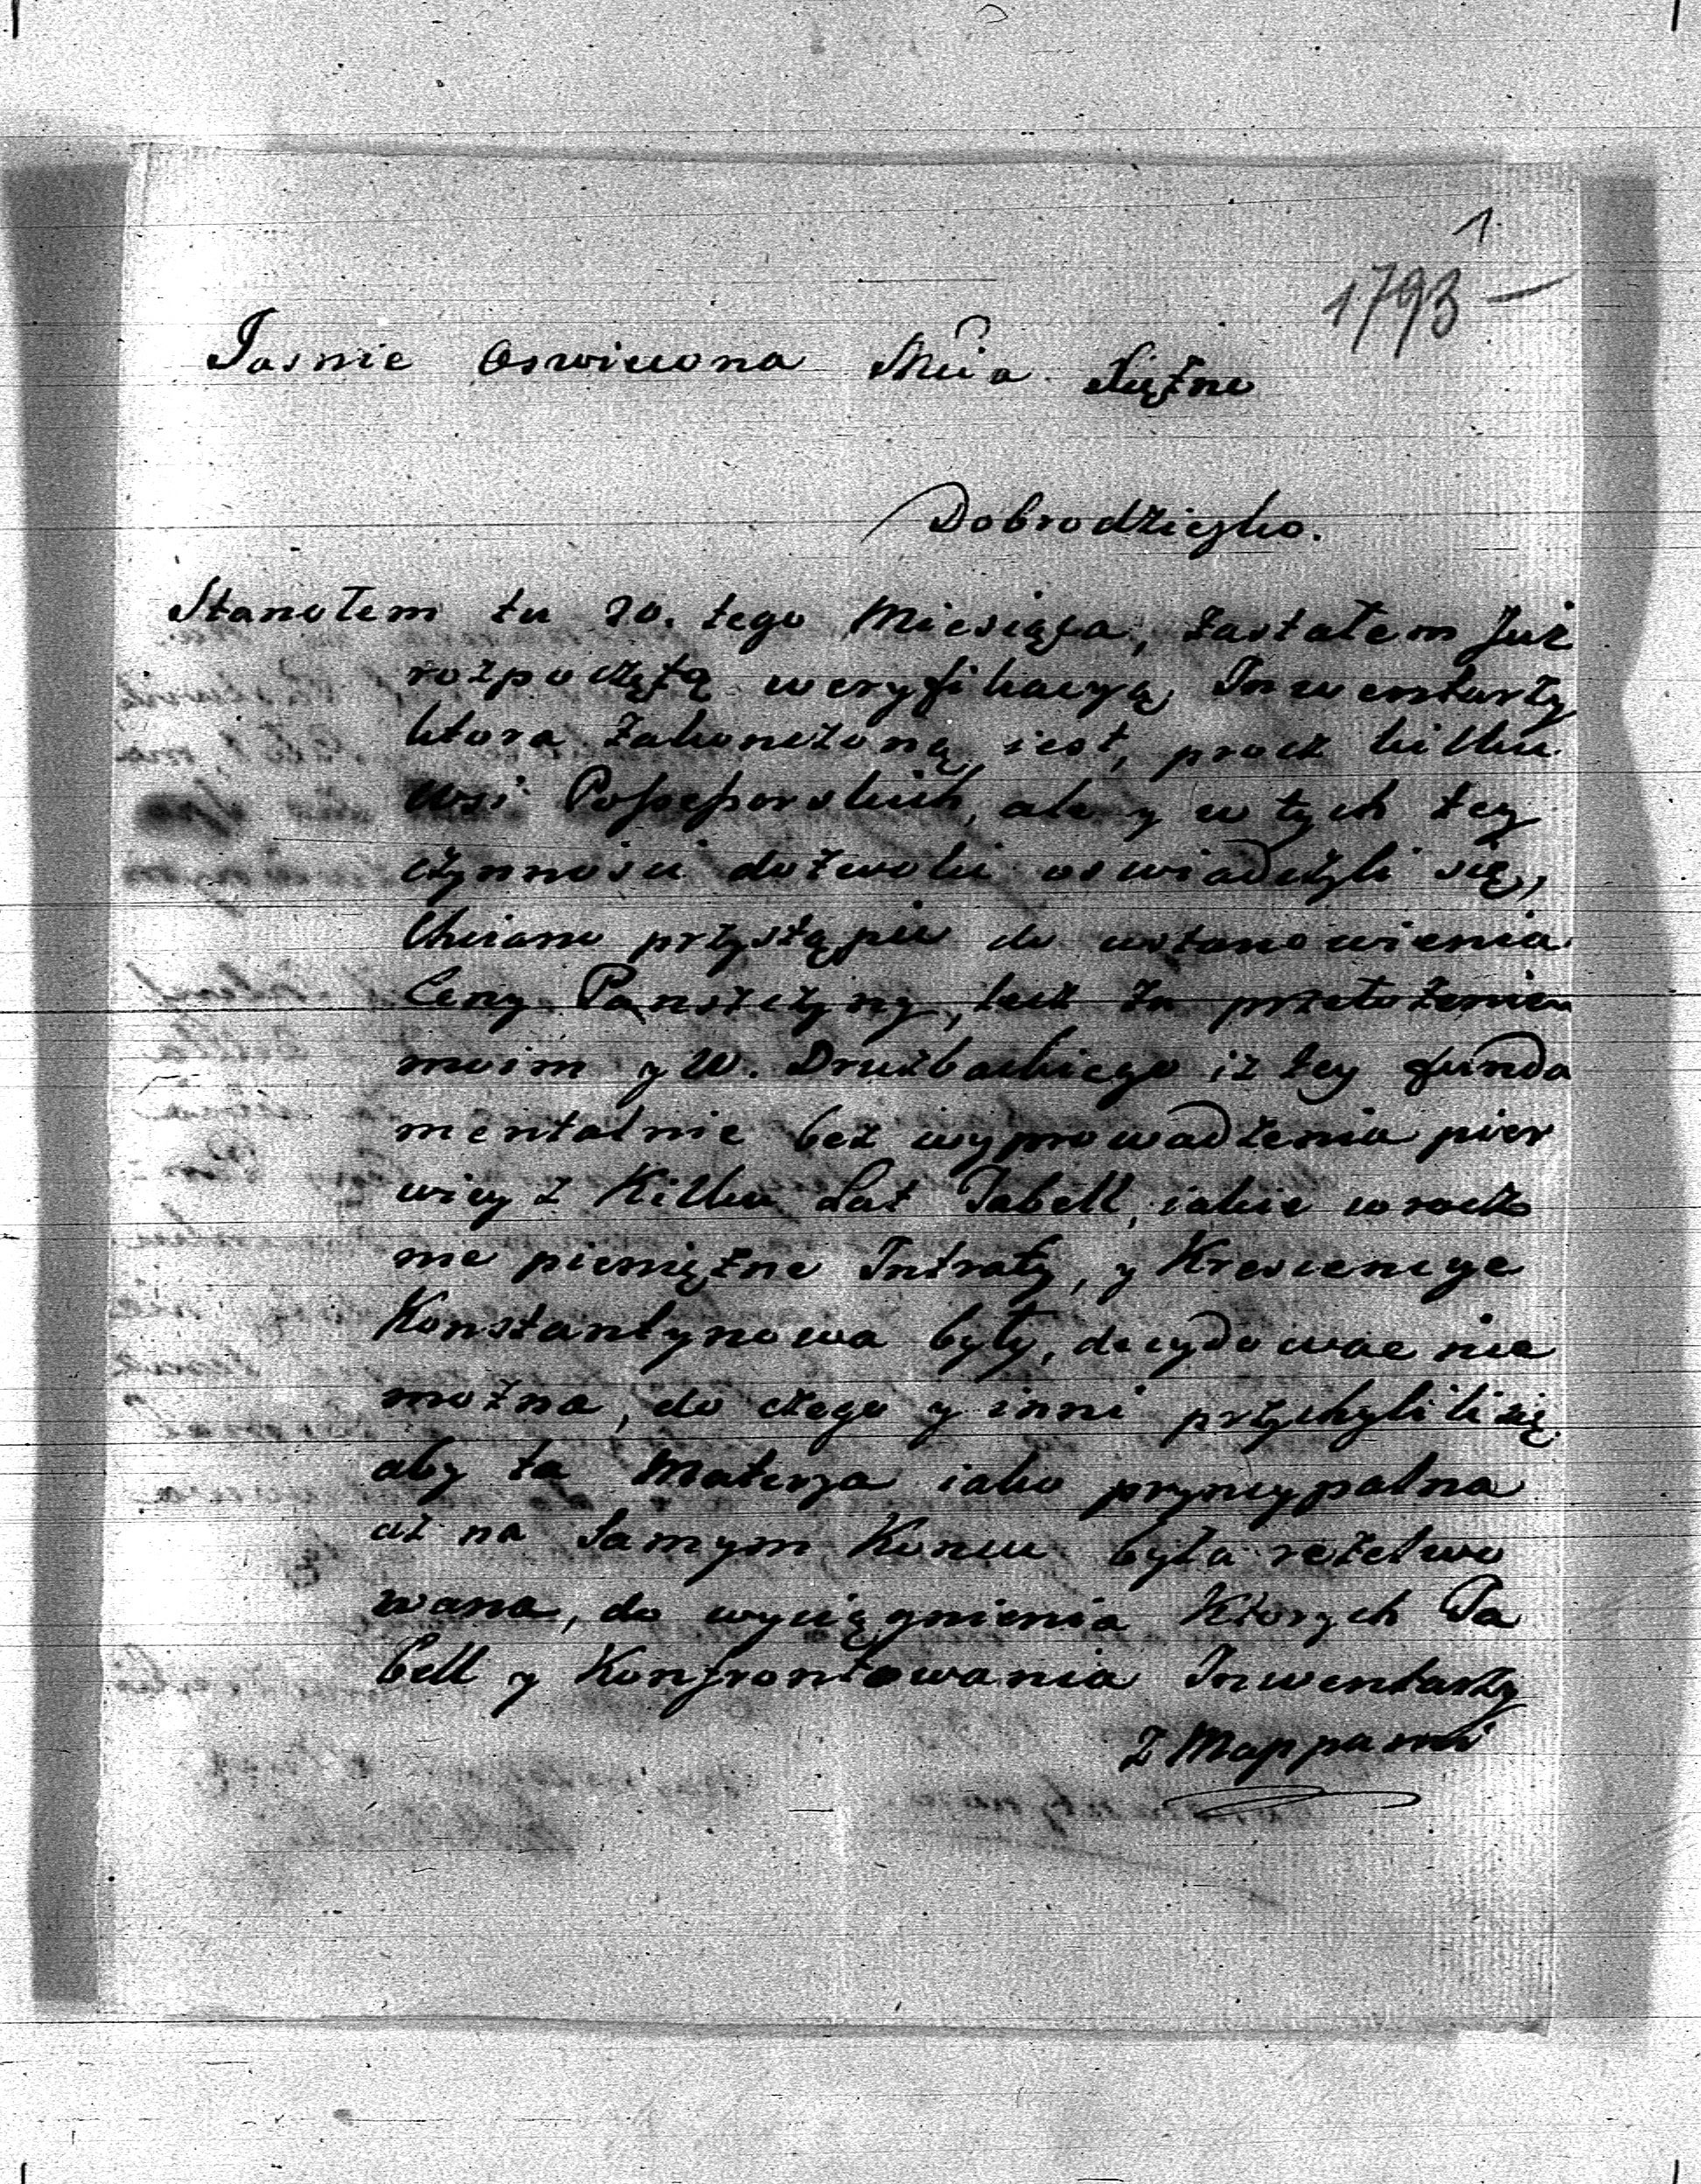 1.
1793
Jasnie Oswiecona Mcia Xiężno
Dobrodzieyko.
Stanołem tu 20. tego Miesiąca, zastałem Już
rozpoczętą weryfikacyą Inwentarzy
ktora zakonczoną iest, procz kilku
wsi Possessorskich, ale y w tych tey
czynnosci dozwolic oswiadczyli się,
Chciano przystąpic do ustanowienia
Ceny Panszczyzny, lecz za przełożeniem
moim y W. Druzbackiego iż tey funda
mentalnie bez wyprowadzenia pier
wiey z Kilku Lat Tabell, iakie w rocz
ne pieniężne Intraty, y Krescencye
Konstantynowa były, decydowac nie
można, do czego y inni przychylili się
aby ta Materya iako pryncypalna
aż na Samym Koncu była rezelwo
wana, do wyciągnienia Ktorych Ta
bell y Konfrontowania Inwentarzy
Z Mappami